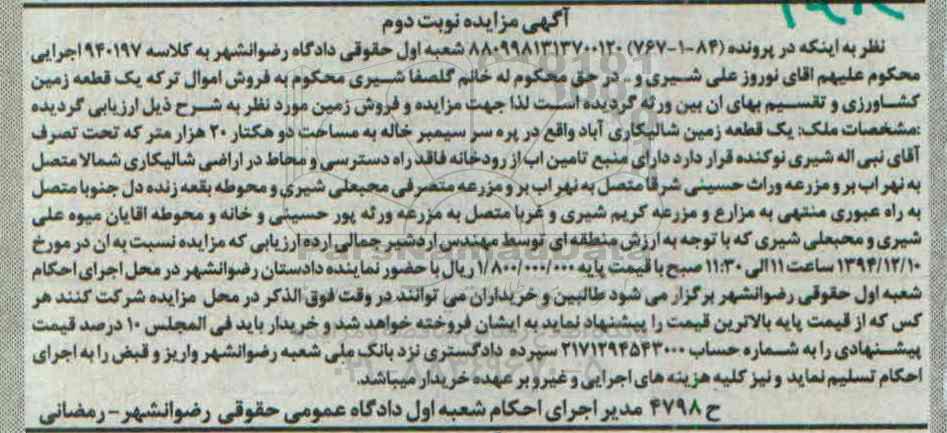 آگهی مزایده نوبت دوم
نظر به اینکه در پرونده (۸۴-۱-۷۶۷) ۸۸۰۹۹۸۱۳۱۳۷۰۰۱۲۰ شعبه اول حقوقی دادگاه رضوانشهر به کلاسه ۹۴۰۱۹۷ اجرایی
محکوم علیهم اقای نوروز علی شیری و.. در حق محکوم له خانم گلصفا شیری محکوم به فروش اموال ترکه یک قطعه زمین
کشاورزی و تقسیم بهای ان بین ورثه گردیده است لذا جهت مزایده و فروش زمین مورد نظر به شرح ذیل ارزیابی گردیده
:مشخصات ملک: یک قطعه زمین شالیکاری آباد واقع در پره سر سیمبر خاله به مساحت دو هکتار ۲۰ هزار متر که تحت تصرف
آقای نبی اله شیری نوکنده قرار دارد دارای منبع تامین اب از رودخانه فاقد راه دسترسی و محاط در اراضی شالیکاری شمالا متصل
به نهر اب بر و مزرعه وراث حسینی شرقا متصل به نهر اب بر و مزرعه متصرفی محبعلی شیری و محوطه بقعه زنده دل جنوبا متصل
به راه عبوری منتهی به مزارع و مزرعه کریم شیری و غربا متصل به مزرعه ورثه پور حسینی و خانه و محوطه اقایان میوه علی
شیری و محبعلی شیری که با توجه به ارزش منطقه ای توسط مهندس اردشیر جمالی ارده ارزیابی که مزایده نسبت به ان در مورخ
۱۳۹۴/۱۲/۱۰ ساعت ۱۱ الی ۱۱:۳۰ صبح با قیمت پایه ۱/۸۰۰/۰۰۰/۰۰۰ ریال با حضور نماینده دادستان رضوانشهر در محل اجرای احکام
شعبه اول حقوقی رضوانشهر برگزار می شود طالبین و خریداران می توانند در وقت فوق الذکر در محل مزایده شرکت کنند هر
کس که از قیمت پایه بالاترین قیمت را پیشنهاد نماید به ایشان فروخته خواهد شد و خریدار باید فی المجلس ۱۰ درصد قیمت
پیشنهادی را به شماره حساب ۲۱۷۱۲۹۴۵۴۳۰۰۰ سپرده دادگستری نزد بانک ملی شعبه رضوانشهر واریز و قبض را به اجرای
احکام تسلیم نماید و نیز کلیه هزینه های اجرایی و غیرو بر عهده خریدار میباشد.
ح ۴۷۹۸ مدیر اجرای احکام شعبه اول دادگاه عمومی حقوقی رضوانشهر - رمضانی